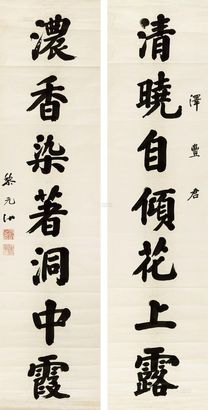 澤豐君
清曉自傾花上露
濃香染著洞中霞
黎元洪